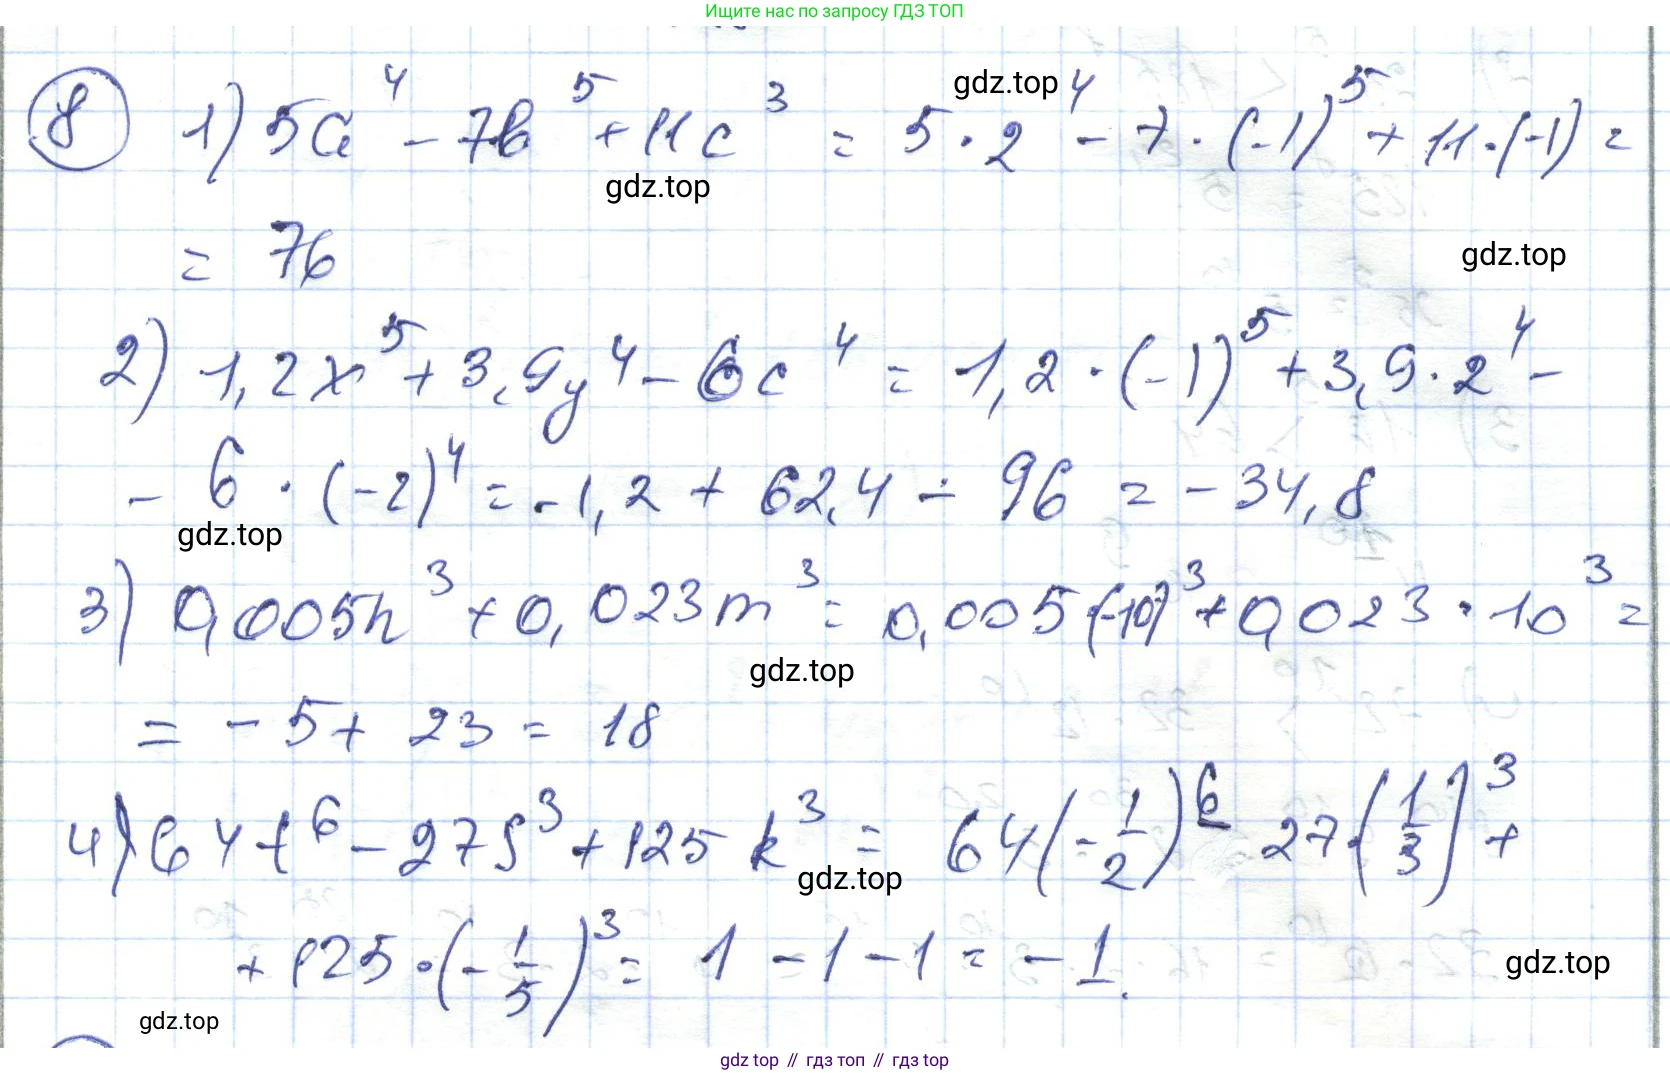 Ищите нас по запросу ГДЗ ТОП
8 1) 5a⁴ - 7b⁵ + 11c³ = 5 · 2⁴ - 7 · (-1)⁵ + 11 · (-1) =
gdz.top
gdz.top
= 76
gdz.top
2) 1,2x⁵ + 3,9y⁴ - 6c⁴ = 1,2 · (-1)⁵ + 3,9 · 2⁴ -
- 6 · (-2)⁴ = -1,2 + 62,4 - 96 = -34,8
gdz.top
3) 0,005n³ + 0,023m³ = 0,005·(-10)³ + 0,023 · 10³ =
gdz.top
= - 5 + 23 = 18
4) 64t⁶ - 27s³ + 125k³ = 64(-1/2)⁶ - 27·(1/3)³ +
gdz.top
+ 125 · (-1/5)³ = 1 - 1 - 1 = -1.
gdz.top
gdz.top
gdz top // гдз топ // гдз top